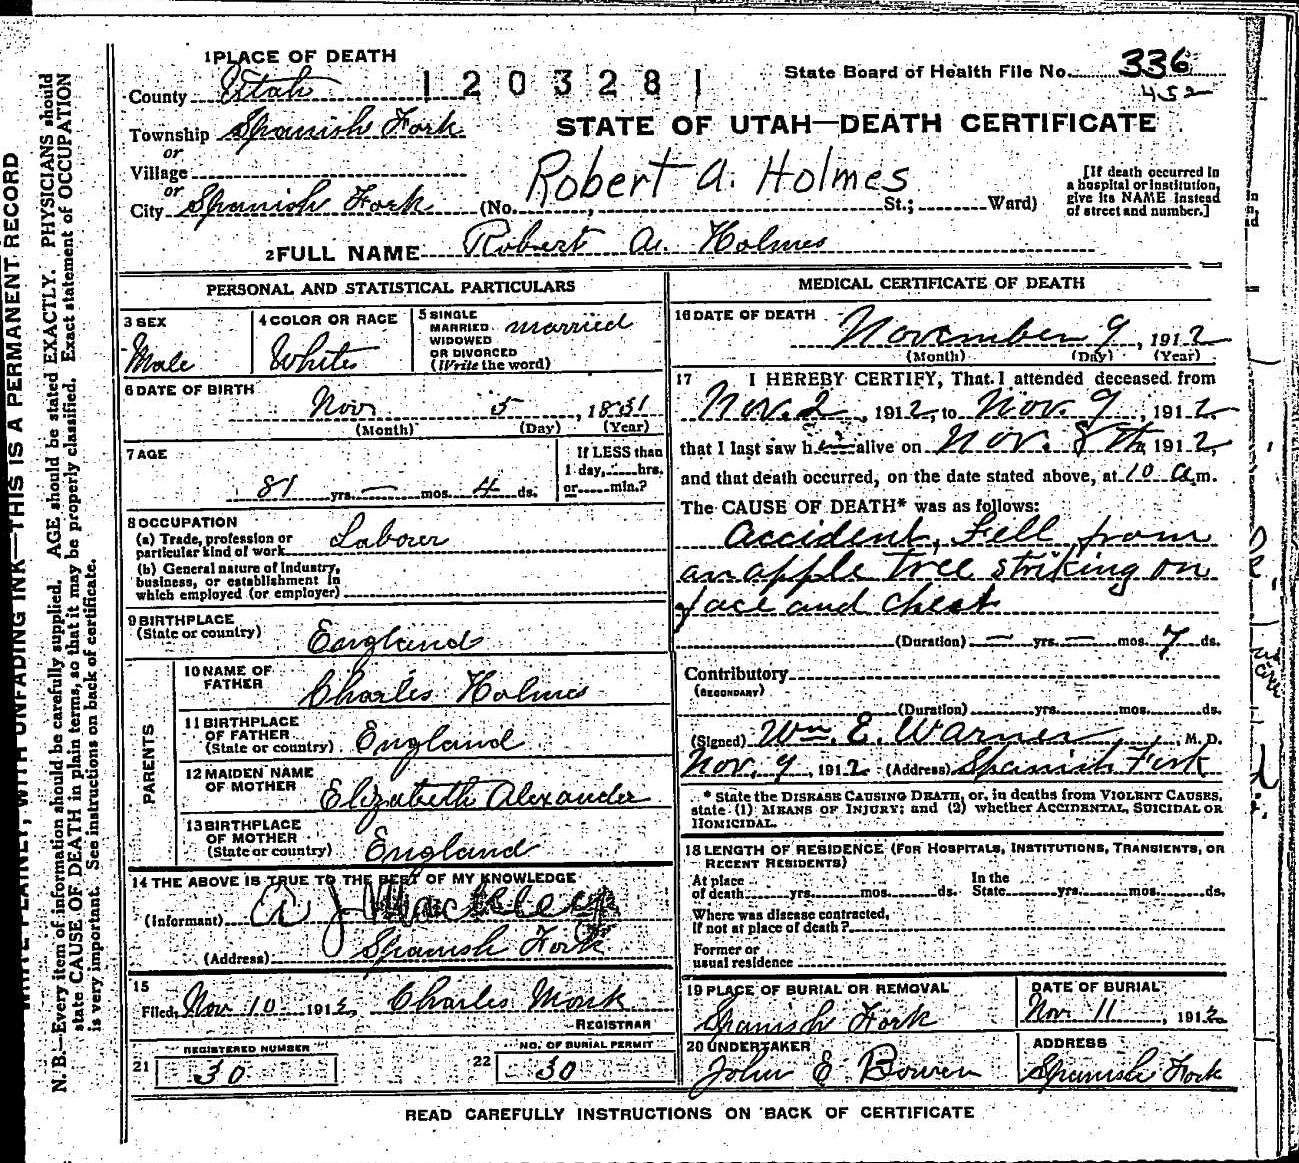 1 PLACE OF DEATH
County Utah
1203281
State Board of Health File No. 336
452
Township Spanish Fork
or
Village
or
City Spanish Fork
STATE OF UTAH—DEATH CERTIFICATE
Robert A. Holmes
(No. , St.; Ward)
[If death occurred in
a hospital or institution,
give its NAME instead
of street and number.]
2 FULL NAME Robert A. Holmes
PERSONAL AND STATISTICAL PARTICULARS
3 SEX
Male
4 COLOR OR RACE
White
5 SINGLE
MARRIED
WIDOWED
OR DIVORCED
(Write the word)
married
6 DATE OF BIRTH
Nov 5, 1831
(Month) (Day) (Year)
7 AGE
81 yrs. — mos. 4 ds.
If LESS than
1 day, hrs.
or min.?
8 OCCUPATION
(a) Trade, profession or
particular kind of work Laborer
(b) General nature of industry,
business, or establishment in
which employed (or employer)
9 BIRTHPLACE
(State or country)
England
PARENTS
10 NAME OF
FATHER
Charles Holmes
11 BIRTHPLACE
OF FATHER
(State or country) England
12 MAIDEN NAME
OF MOTHER
Elizabeth Alexander
13 BIRTHPLACE
OF MOTHER
(State or country) England
14 THE ABOVE IS TRUE TO THE BEST OF MY KNOWLEDGE
(Informant)
(Address) Spanish Fork
15
Filed, Nov 10 1912, Charles Monk
REGISTRAR
REGISTERED NUMBER
21 30
NO. OF BURIAL PERMIT
22 30
MEDICAL CERTIFICATE OF DEATH
16 DATE OF DEATH
November 9, 1912
(Month) (Day) (Year)
17 I HEREBY CERTIFY, That I attended deceased from
Nov. 2, 1912, to Nov. 9, 1912
that I last saw h alive on Nov. 8th, 1912,
and that death occurred, on the date stated above, at 10 a.m.
The CAUSE OF DEATH* was as follows:
Accident, Fell from
an apple tree striking on
face and chest
(Duration) — yrs. — mos. 7 ds.
Contributory
(SECONDARY)
(Duration) yrs. mos. ds.
(Signed) Wm. E. Warner, M. D.
Nov. 9, 1912 (Address) Spanish Fork
* State the DISEASE CAUSING DEATH, or, in deaths from VIOLENT CAUSES,
state (1) MEANS OF INJURY; and (2) whether ACCIDENTAL, SUICIDAL OR
HOMICIDAL.
18 LENGTH OF RESIDENCE (FOR HOSPITALS, INSTITUTIONS, TRANSIENTS, OR
RECENT RESIDENTS)
At place
of death yrs. mos. ds.
In the
State yrs. mos. ds.
Where was disease contracted,
If not at place of death?
Former or
usual residence
19 PLACE OF BURIAL OR REMOVAL
Spanish Fork
DATE OF BURIAL
Nov 11, 1912
20 UNDERTAKER
John E. Bowen
ADDRESS
Spanish Fork
READ CAREFULLY INSTRUCTIONS ON BACK OF CERTIFICATE
WRITE PLAINLY, WITH UNFADING INK—THIS IS A PERMANENT RECORD
N. B.—Every item of information should be carefully supplied. AGE should be stated EXACTLY. PHYSICIANS should
state CAUSE OF DEATH in plain terms, so that it may be properly classified. Exact statement of OCCUPATION
is very important. See instructions on back of certificate.